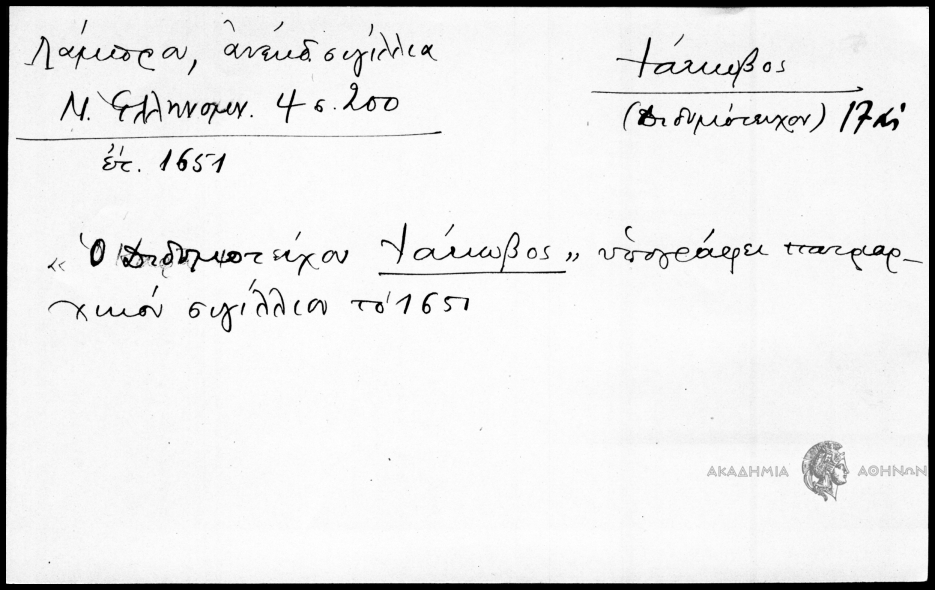 Λάμπρου, ἀνέκδ. σιγίλλια
Ν. Ἑλληνομν. 4 σ. 200
ἔτ. 1651
Ἰάκωβος
(Διδυμότειχον) 17 αἰ
« Ὁ Διδυμοτείχου Ἰάκωβος » ὑπογράφει πατριαρ-
χικόν σιγίλλιον τό 1651
ΑΚΑΔΗΜΙΑ ΑΘΗΝΩΝ